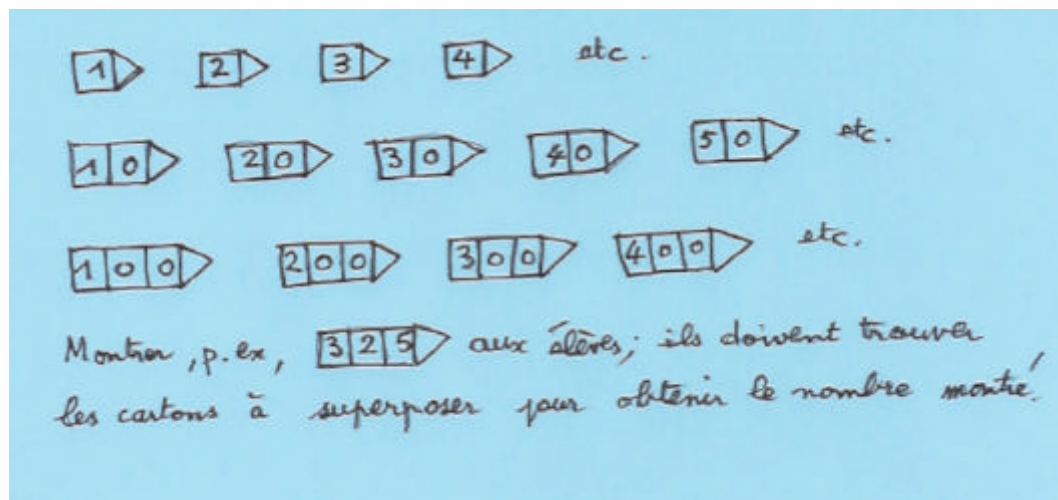 1 2 3 4 etc.
10 20 30 40 50 etc.
100 200 300 400 etc.
Montrer, p. ex, 325 aux élèves; ils doivent trouver
les cartons à superposer pour obtenir le nombre montré.